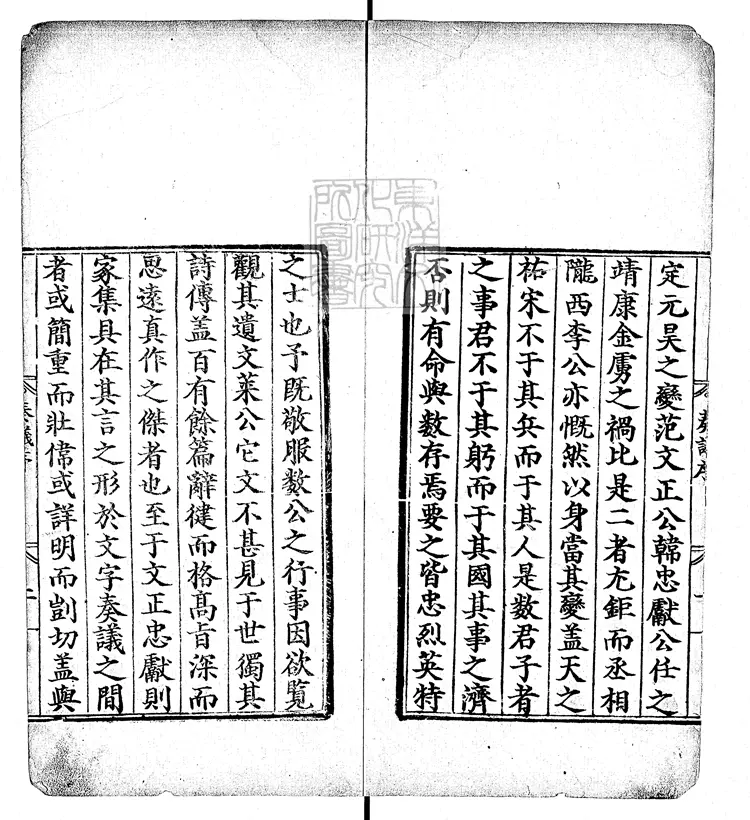 定元昊之變范文正公韓忠獻公任之
靖康金虜之禍比是二者尢鉅而丞相
隴西李公亦慨然以身當其變盖天之
祐宋不于其兵而于其人是数君子者
之事君不于其躬而于其國其事之濟
否則有命與数存焉要之皆忠烈英特
之士也予既敬服数公之行事因欲覧
觀其遺文萊公它文不甚見于世獨其
詩傳盖百有餘篇辭健而格髙旨深而
思遠真作之傑者也至于文正忠獻則
家集具在其言之形於文字奏議之間
者或簡重而壯偉或詳明而剴切盖與
奏議序
二